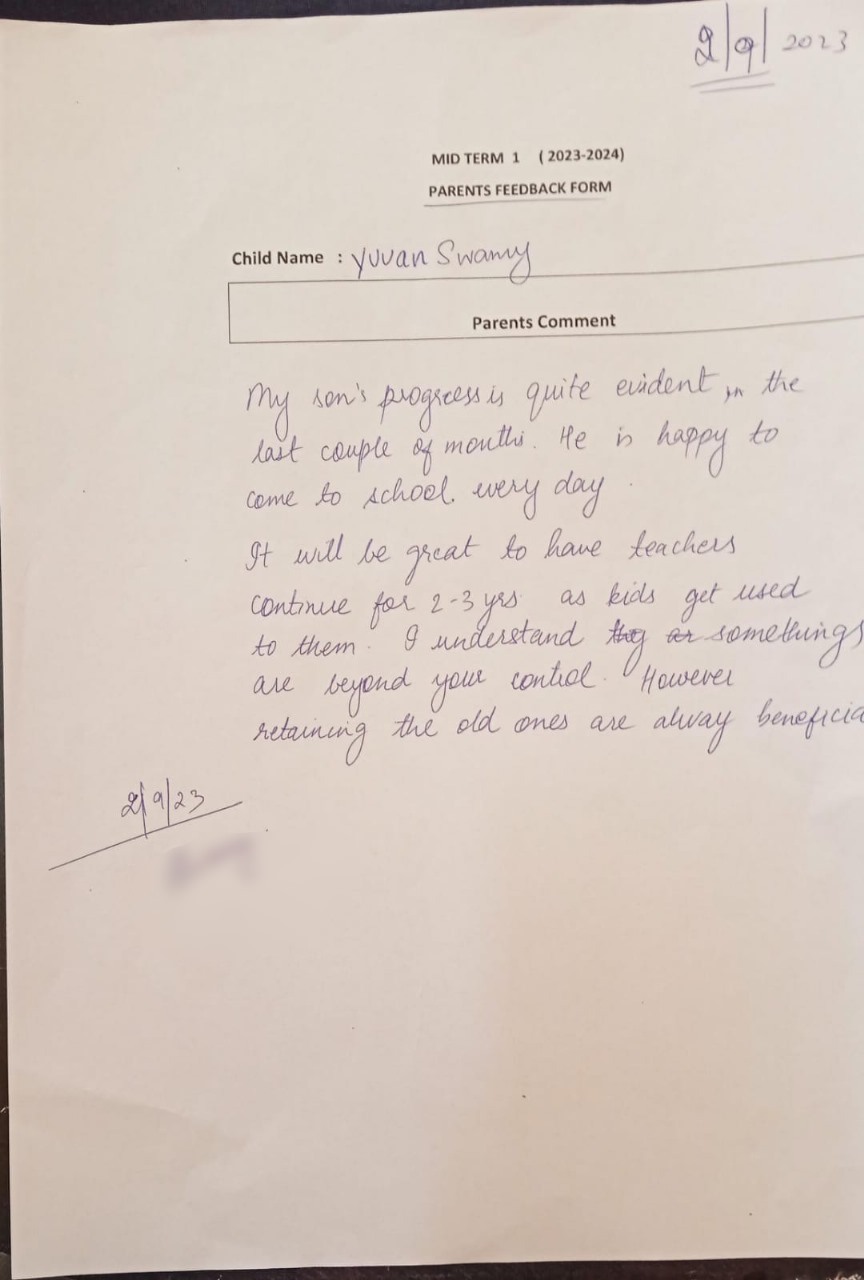 2/9/2023
MID TERM 1 ( 2023-2024)
PARENTS FEEDBACK FORM
Child Name : Yuvan Swamy
Parents Comment
My son's progress is quite evident in the
last couple of months. He is happy to
come to school. every day.
It will be great to have teachers
continue for 2-3 yrs as kids get used
to them. I understand somethings
are beyond your control. However
retaining the old ones are alway beneficia
2/9/23